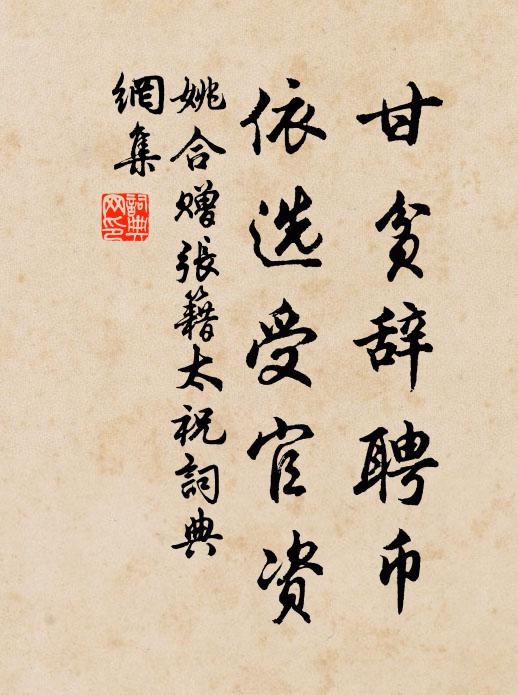 甘贫辞聘币
依选受官资
姚合赠張籍太祝詞典
網集
詞典
网印